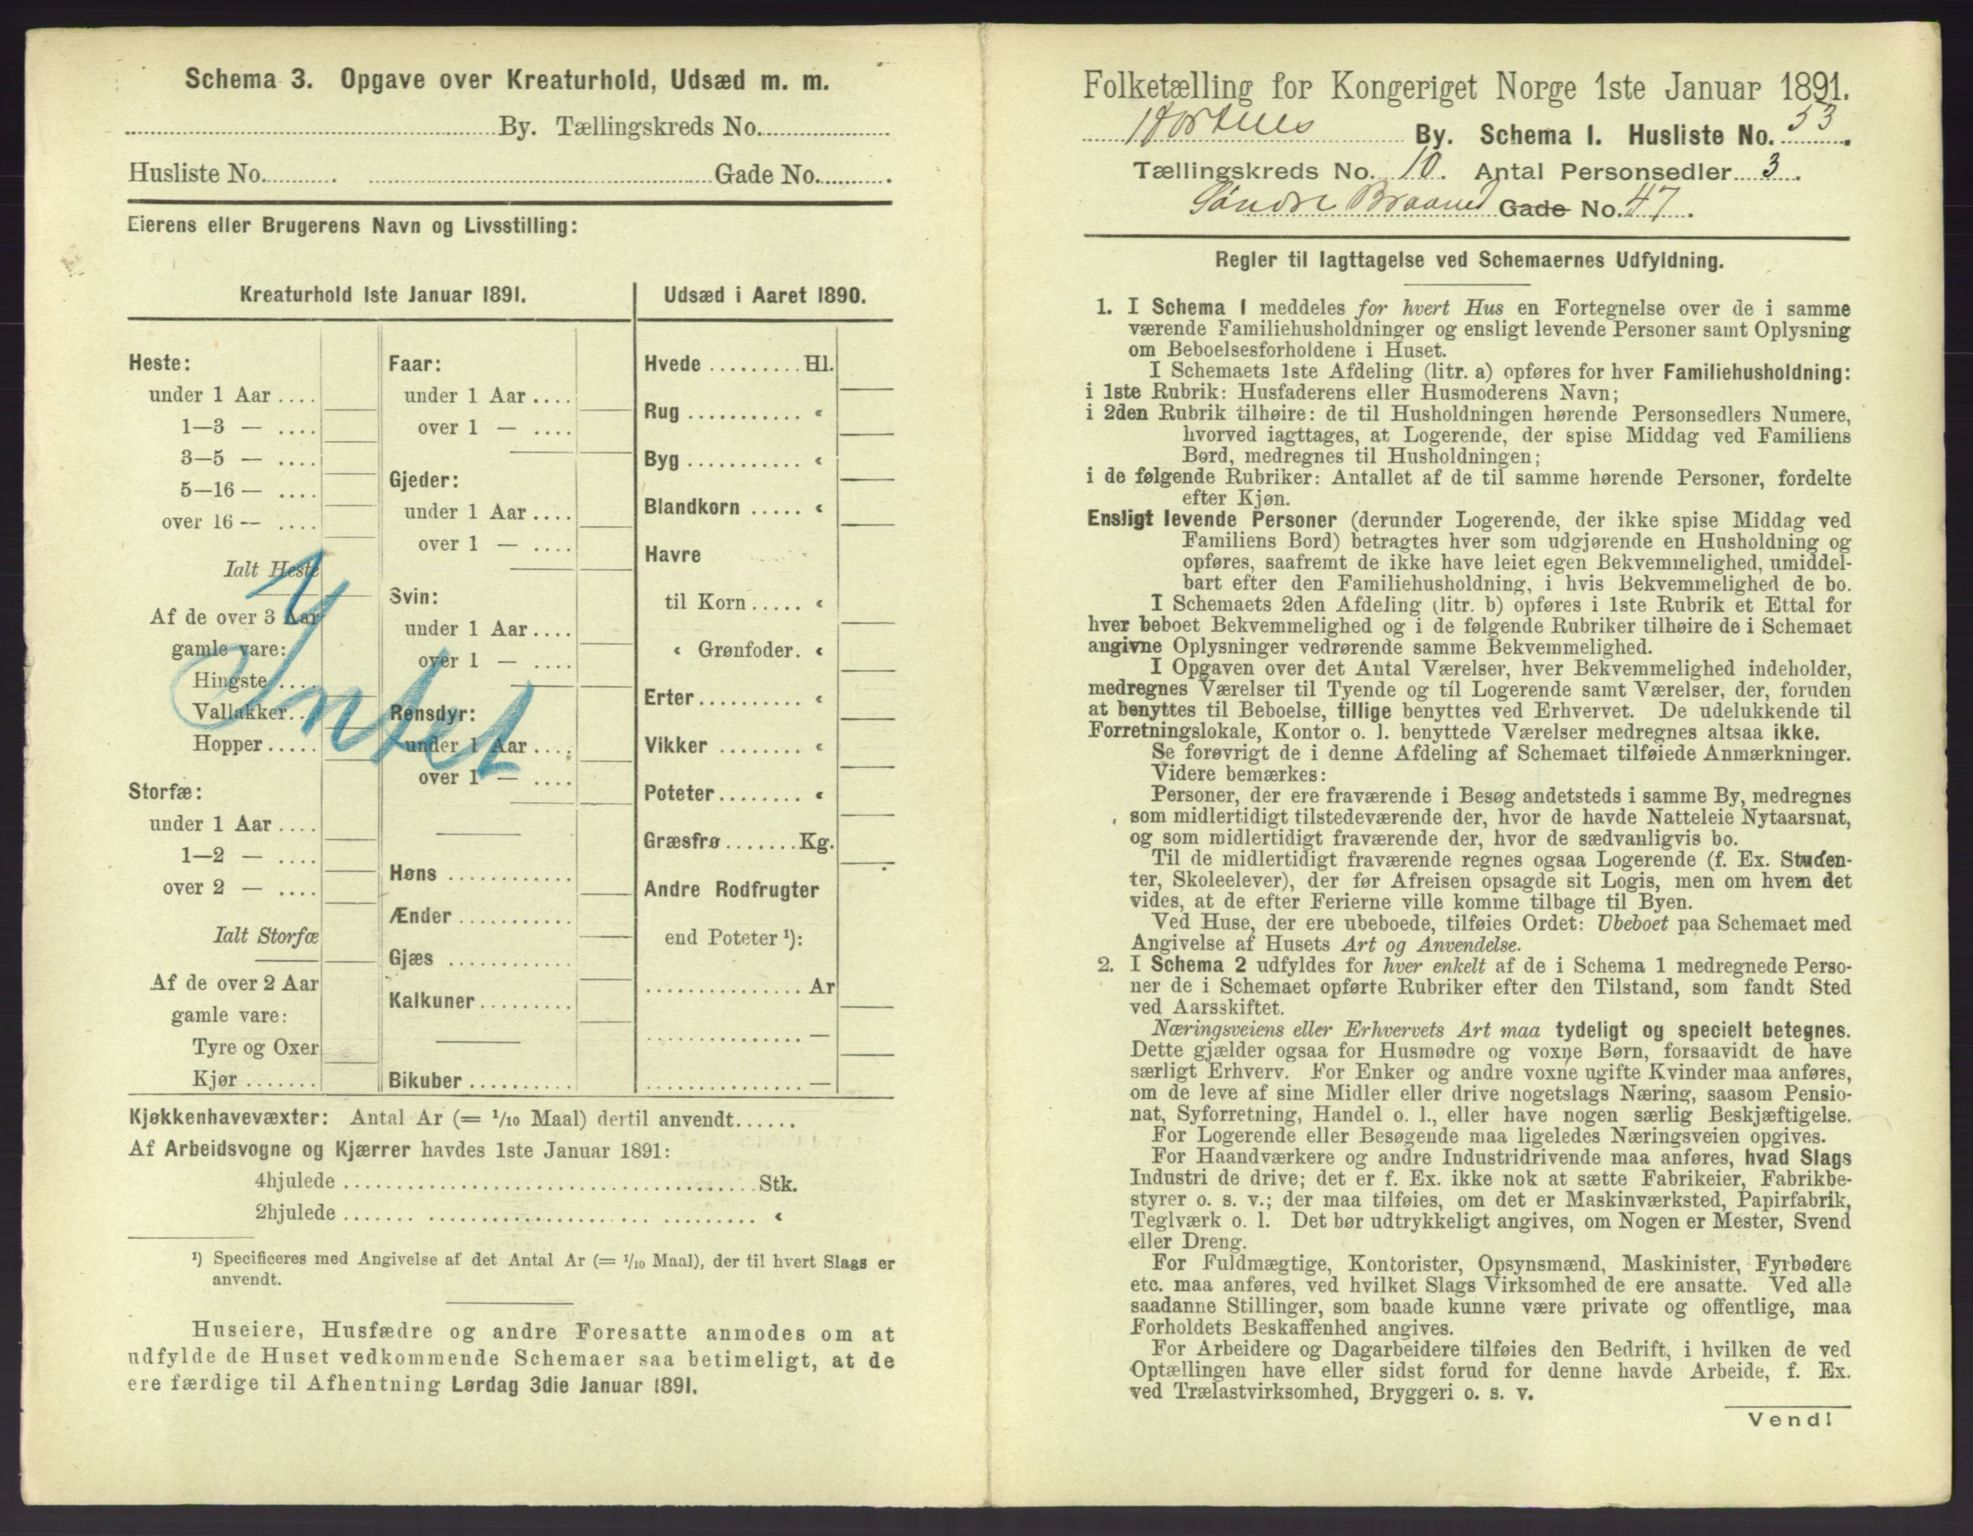 Schema 3. Opgave over Kreaturhold, Udsæd m. m.
By. Tællingskreds No.
Husliste No. Gade No.
Eierens eller Brugerens Navn og Livsstilling:
Kreaturhold 1ste Januar 1891.
Heste:
under 1 Aar ....
1—3 — ....
3—5 — ....
5—16 — ....
over 16 — ....
Ialt Heste
Af de over 3 Aar
gamle vare:
Hingste ....
Vallakker ..
Hopper .....
Storfæ:
under 1 Aar ....
1—2 — ....
over 2 — ....
Ialt Storfæ
Af de over 2 Aar
gamle vare:
Tyre og Oxer
Kjør .......
Faar:
under 1 Aar ....
over 1 — ....
Gjeder:
under 1 Aar ....
over 1 — ....
Svin:
under 1 Aar ....
over 1 — ....
Rensdyr:
under 1 Aar ....
over 1 — ....
Intet
Høns ............
Ænder ...........
Gjæs ............
Kalkuner .........
Bikuber ..........
Udsæd i Aaret 1890.
Hvede ......... Hl.
Rug ........... «
Byg ........... «
Blandkorn ..... «
Havre
til Korn ..... «
« Grønfoder. «
Erter ......... «
Vikker ........ «
Poteter ........ «
Græsfrø ....... Kg.
Andre Rodfrugter
end Poteter ¹):
............... Ar
............... —
............... —
Kjøkkenhavevæxter: Antal Ar (= 1/10 Maal) dertil anvendt ......
Af Arbeidsvogne og Kjærrer havdes 1ste Januar 1891:
4hjulede ........ Stk.
2hjulede ........ «
¹) Specificeres med Angivelse af det Antal Ar (= 1/10 Maal), der til hvert Slags er
anvendt.
Huseiere, Husfædre og andre Foresatte anmodes om at
udfylde de Huset vedkommende Schemaer saa betimeligt, at de
ere færdige til Afhentning Lørdag 3die Januar 1891.
Folketælling for Kongeriget Norge 1ste Januar 1891.
Hortens By. Schema 1. Husliste No. 53.
Tællingskreds No. 10. Antal Personsedler 3.
Søndre Braaned Gade No. 47.
Regler til Iagttagelse ved Schemaernes Udfyldning.
1. I Schema 1 meddeles for hvert Hus en Fortegnelse over de i samme
værende Familiehusholdninger og ensligt levende Personer samt Oplysning
om Beboelsesforholdene i Huset.
I Schemaets 1ste Afdeling (litr. a) opføres for hver Familiehusholdning:
i 1ste Rubrik: Husfaderens eller Husmoderens Navn;
i 2den Rubrik tilhøire: de til Husholdningen hørende Personsedlers Numere,
hvorved iagttages, at Logerende, der spise Middag ved Familiens
Bord, medregnes til Husholdningen;
i de følgende Rubriker: Antallet af de til samme hørende Personer, fordelte
efter Kjøn.
Ensligt levende Personer (derunder Logerende, der ikke spise Middag ved
Familiens Bord) betragtes hver som udgjørende en Husholdning og
opføres, saafremt de ikke have leiet egen Bekvemmelighed, umiddel-
bart efter den Familiehusholdning, i hvis Bekvemmelighed de bo.
I Schemaets 2den Afdeling (litr. b) opføres i 1ste Rubrik et Ettal for
hver beboet Bekvemmelighed og i de følgende Rubriker tilhøire de i Schemaet
angivne Oplysninger vedrørende samme Bekvemmelighed.
I Opgaven over det Antal Værelser, hver Bekvemmelighed indeholder,
medregnes Værelser til Tyende og til Logerende samt Værelser, der, foruden
at benyttes til Beboelse, tillige benyttes ved Erhvervet. De udelukkende til
Forretningslokale, Kontor o. l. benyttede Værelser medregnes altsaa ikke.
Se forøvrigt de i denne Afdeling af Schemaet tilføiede Anmærkninger.
Videre bemærkes:
Personer, der ere fraværende i Besøg andetsteds i samme By, medregnes
som midlertidigt tilstedeværende der, hvor de havde Natteleie Nytaarsnat,
og som midlertidigt fraværende der, hvor de sædvanligvis bo.
Til de midlertidigt fraværende regnes ogsaa Logerende (f. Ex. Studen-
ter, Skoleelever), der før Afreisen opsagde sit Logis, men om hvem det
vides, at de efter Ferierne ville komme tilbage til Byen.
Ved Huse, der ere ubeboede, tilføies Ordet: Ubeboet paa Schemaet med
Angivelse af Husets Art og Anvendelse.
2. I Schema 2 udfyldes for hver enkelt af de i Schema 1 medregnede Perso-
ner de i Schemaet opførte Rubriker efter den Tilstand, som fandt Sted
ved Aarsskiftet.
Næringsveiens eller Erhvervets Art maa tydeligt og specielt betegnes.
Dette gjælder ogsaa for Husmødre og voxne Børn, forsaavidt de have
særligt Erhverv. For Enker og andre voxne ugifte Kvinder maa anføres,
om de leve af sine Midler eller drive nogetslags Næring, saasom Pensio-
nat, Syforretning, Handel o. l., eller have nogen særlig Beskjæftigelse.
For Logerende eller Besøgende maa ligeledes Næringsveien opgives.
For Haandværkere og andre Industridrivende maa anføres, hvad Slags
Industri de drive; det er f. Ex. ikke nok at sætte Fabrikeier, Fabrikbe-
styrer o. s. v.; der maa tilføies, om det er Maskinværksted, Papirfabrik,
Teglværk o. l. Det bør udtrykkeligt angives, om Nogen er Mester, Svend
eller Dreng.
For Fuldmægtige, Kontorister, Opsynsmænd, Maskinister, Fyrbødere
etc. maa anføres, ved hvilket Slags Virksomhed de ere ansatte. Ved alle
saadanne Stillinger, som baade kunne være private og offentlige, maa
Forholdets Beskaffenhed angives.
For Arbeidere og Dagarbeidere tilføies den Bedrift, i hvilken de ved
Optællingen have eller sidst forud for denne havde Arbeide, f. Ex.
ved Trælastvirksomhed, Bryggeri o. s. v.
Vend!